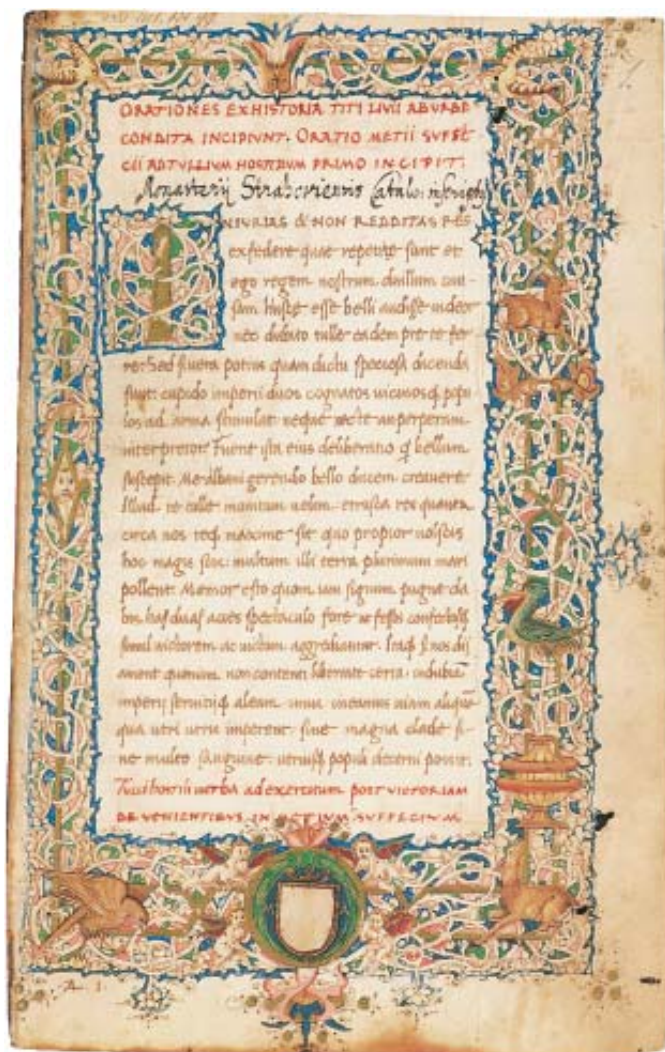 ORATIONES EX HISTORIA TITI LIVII AB VRBE
CONDITA INCIPIUNT. ORATIO METII SVFFE
CII AD TVLLIVM HOSTILIVM PRIMO INCIPIT.
Monasterii Strahoviensis Catalo: inscriptus
INIVRIAS & NON REDDITAS RES
ex federe quae repetitae sunt et
ego regem nostrum cluilium cau
sam huiusce esse belli audisse videor
nec dubito tulle eadem pre te fer
re: Sed si vera potius quam dictu speciosa dicenda
sunt: cupido imperii duos cognatos vicinosq popu
los ad arma stimulat neque recte an perperam
interpretor. Fuerit ista eius deliberatio q bellum
suscepit. Me albani gerendo bello ducem creavere
Illud te tulle monitum velim. etrusca res quanta
circa nos teq maxime sit quo propior
hoc magis scis: multum illi terra plurimum mari
pollent. Memor esto quom iam signum pugne da
bis has duas acies spectaculo fore ut fessos confectosq
simul victorem ac victum aggrediantur. Itaq si nos dii
amant quoniam non contenti libertate certa in dubiam
imperii servitiiq aleam imus ineamus viam aliquam
qua utri utris imperent sine magna clade si
ne multo sanguine utriusq populi decerni possit.
Tulli hostilii verba ad exercitum post VICTORIAM
DE VENIENTIBUS IN METIVM SVFFECIVM
A 1